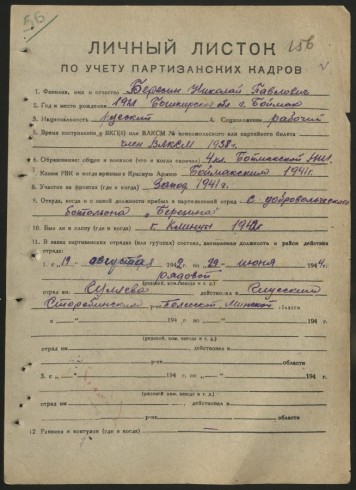 56
ЛИЧНЫЙ ЛИСТОК
156
ПО УЧЕТУ ПАРТИЗАНСКИХ КАДРОВ
1. Фамилия, имя и отчество Березин Николай Павлович
2. Год и место рождения 1921 Башкирская г. Баймак
3. Национальность Русский 4. Соцположение рабочий
5. Время поступления в ВКП(б) или ВЛКСМ № комсомольского или партийного билета
член ВЛКСМ 1938 г.
6. Образование: общее и военное (что и когда окончил) 4 кл. Баймакской
7. Каким РВК и когда призван в Красную Армию Баймакский 1941 г.
8. Участие на фронтах (где и когда) Запад 1941 г.
9. Откуда, когда и в какой должности прибыл в партизанский отряд с добровольческого
батальона „Березина"
10. Был ли в плену (где и когда) г. 1942 г.
11. В каких партизанских отрядах (или группах) состоял, занимаемая должность и район действия
отряда:
1. с „19" августа 1942 г. по „29" июня 1944 г.
рядовой
(рядовой, ком. взвода и т. д.)
отряд им. действовал в
Старобинский р-не Минской области
„ " 194 г. по „ " 194 г.
(рядовой, ком. взвода и т. д.)
отряд им. действовал в
р-не области
3. с „ " 194 г. по „ " 194 г.
(рядовой, ком. взвода и т. д.)
отряд им. действовал в
р-не области
12. Ранения и контузии (где и когда) —